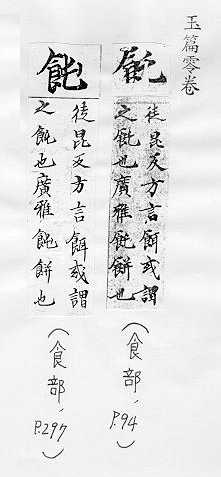 玉篇零卷
飩
徒昆反方言餌或謂
之飩也廣雅飩餅也
(食部、P.94)
飩
徒昆反方言餌或謂
之飩也廣雅飩餅也
(食部、P.297)